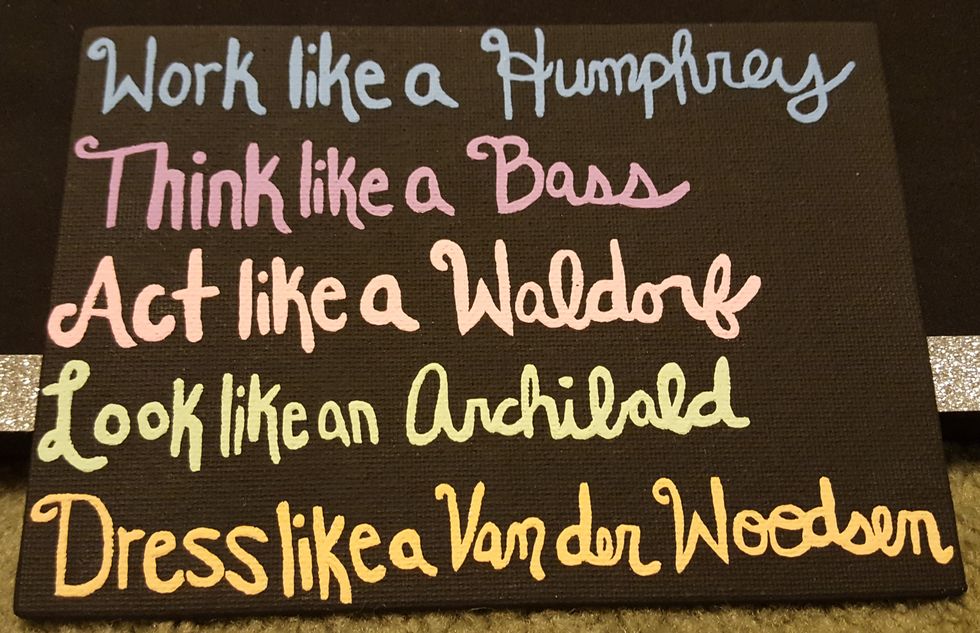 Work like a Humphrey
Think like a Bass
Act like a Waldorf
Look like an Archibald
Dress like a Van der Woodsen